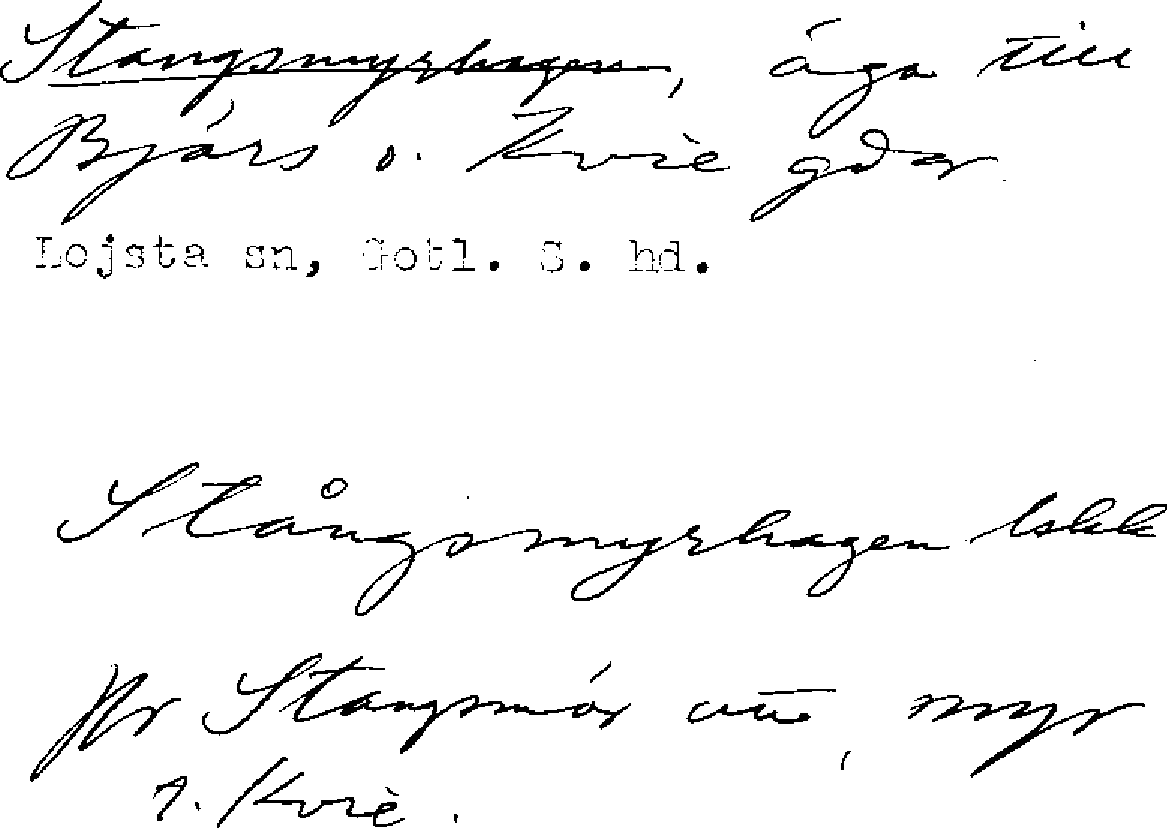 Stangsmyrhagen, äga till
Bjärs o. Kvie gdar
Lojsta sn, Gotl. S. hd.
Stångsmyrhagen
jfr Stangsmöx myr
s. Kvie.